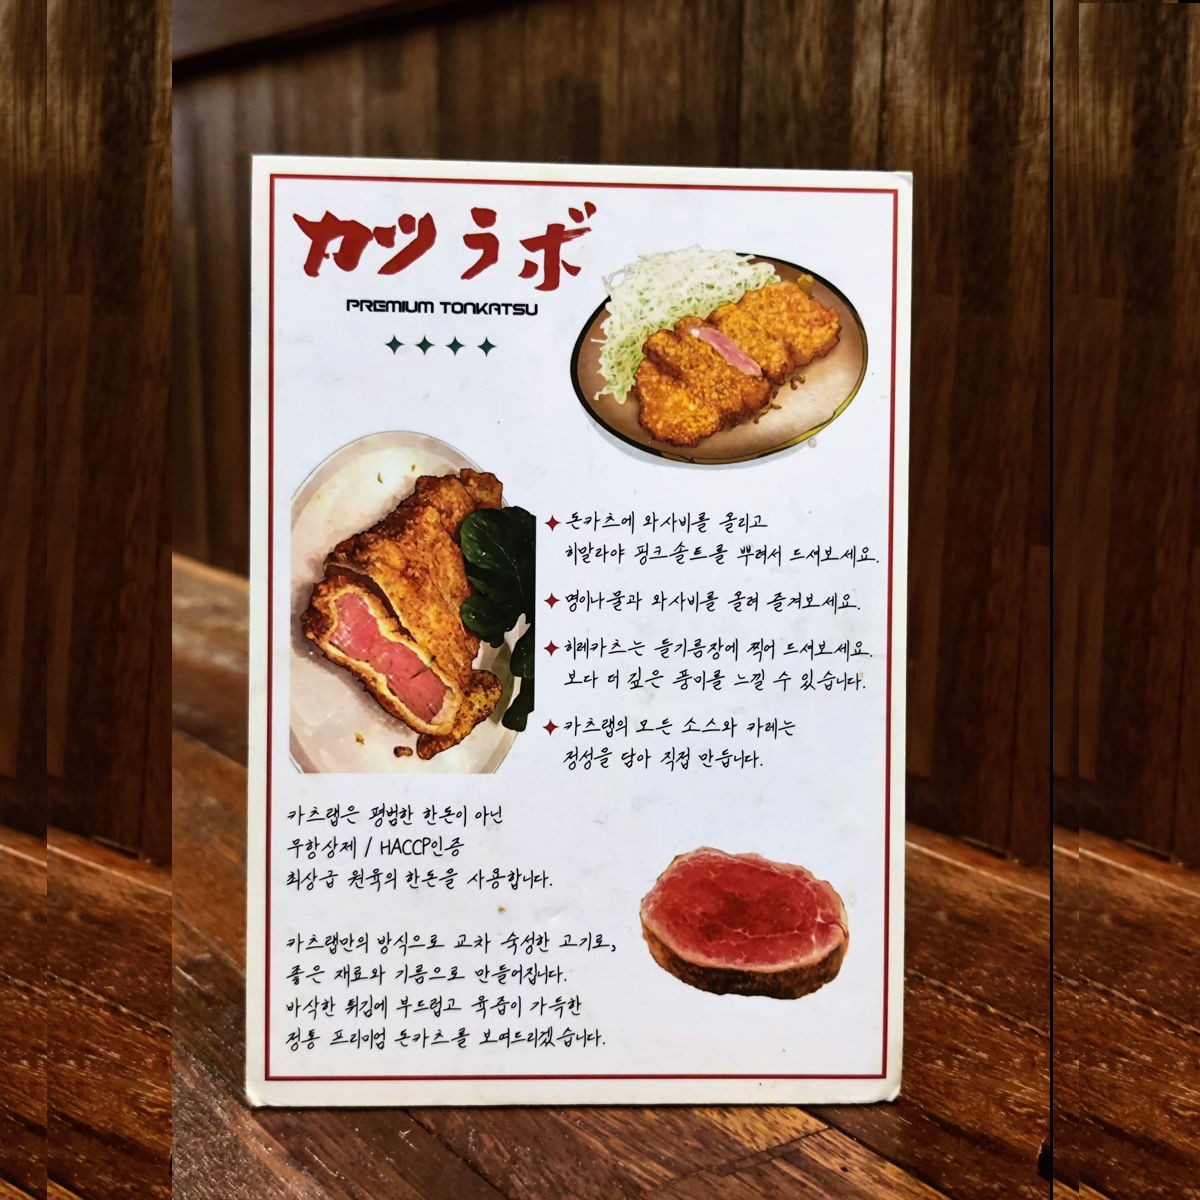 カツラボ
PREMIUM TONKATSU
돈카츠에 와사비를 올리고
히말라야 핑크솔트를 뿌려서 드셔보세요.
명이나물과 와사비를 올려 즐겨보세요.
히레카츠는 들기름장에 찍어 드셔보세요.
보다 더 깊은 풍미를 느낄 수 있습니다.
카츠랩의 모든 소스와 카레는
정성을 담아 직접 만듭니다.
카츠랩은 평범한 한돈이 아닌
무항상제 / HACCP인증
최상급 원육의 한돈을 사용합니다.
카츠랩만의 방식으로 교차 숙성한 고기로,
좋은 재료와 기름으로 만들어집니다.
바삭한 튀김에 부드럽고 육즙이 가득한
정통 프리미엄 돈카츠를 보여드리겠습니다.